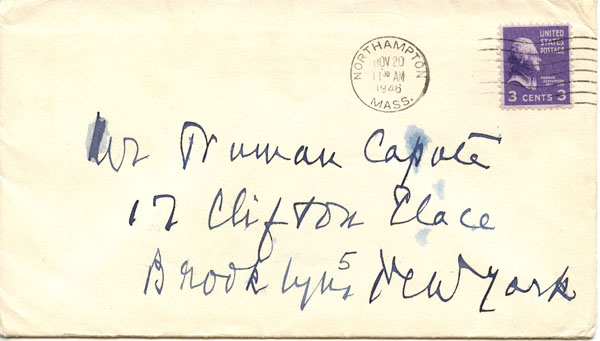 NORTHAMPTON
NOV 20
11 30 AM
1946
MASS.
UNITED
STATES
POSTAGE
THOMAS
JEFFERSON
3 CENTS 3
Mr Truman Capote
17 Clifton Place
Brooklyn 5, New York